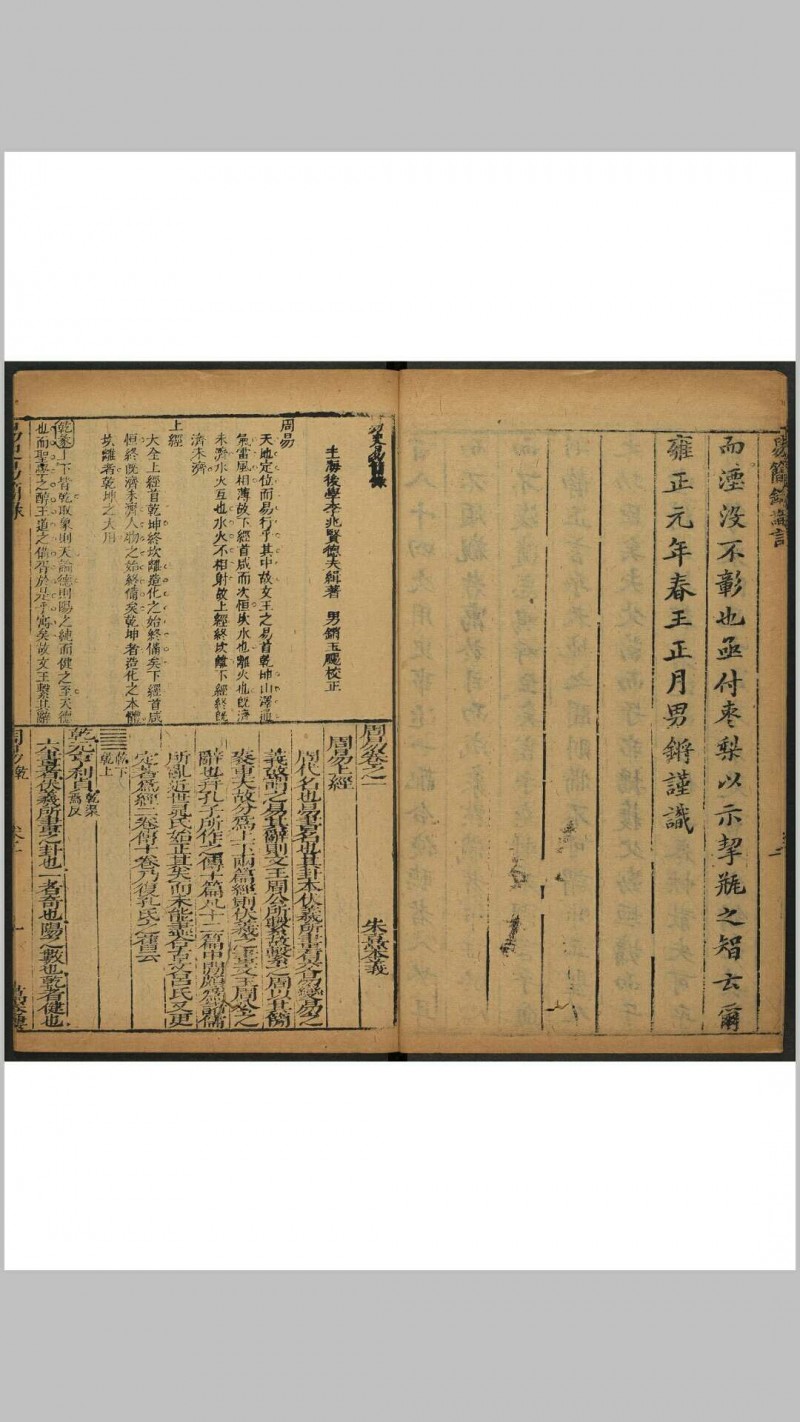 而湮没不彰也亟付枣梨以示挈瓶之智云爾
雍正元年春王正月男鏘謹識
易史易簡錄
後學李兆賢德夫緝著 男鏘玉颺校正
周易
天地定位而易行乎其中故文王之易首乾坤山澤通
氣雷風相薄故下經首咸而次恒坎水也離火也旣濟
未濟水火互也水火不相射故上經終坎離下經終旣
濟未濟
上經
大全上經首乾坤終坎離造化之始終備矣下經首咸
恒終旣濟未濟人物之始終備矣乾坤者造化之本體
坎離者乾坤之大用
乾 上下皆乾取象則天論德則陽之純而健之至天德
也而聖學之醇王道之備胥於是乎寓矣故文王繫其辭
周易卷之一
周易上經
朱熹本義
周代名也易書名也其卦本伏羲所畫有交易變易之
義故謂之易其辭則文王周公所繫故繫之周以其簡
袠重大故分爲上下兩篇經則伏羲之畫文王周公之
辭也并孔子所作之傳十篇凡十二篇中間頗爲諸儒
所亂近世晁氏始正其失而未能盡合古文吕氏又更
定著爲經二卷傳十卷乃復孔氏之舊云
乾下
乾上
乾元亨利貞
乾渠焉反
六畫者伏羲所畫之卦也一者奇也陽之數也乾者健也